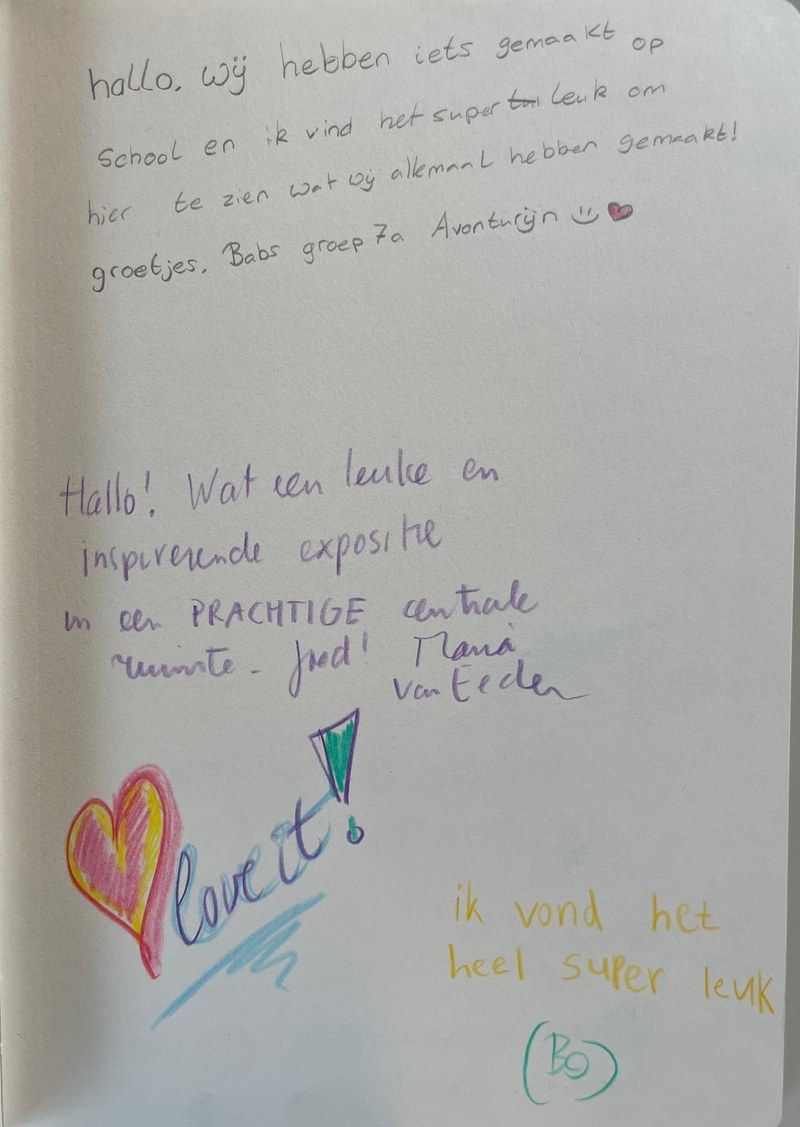 hallo. wij hebben iets gemaakt op
School en ik vind het super leuk om
hier te zien wat wij allemaal hebben gemaakt!
groetjes. Babs groep 7a Avonturijn
Hallo! Wat een leuke en
inspirerende expositie
in een PRACHTIGE centrale
ruimte - Maria
van Eeden
love it!
ik vond het
heel super leuk
(Bo)